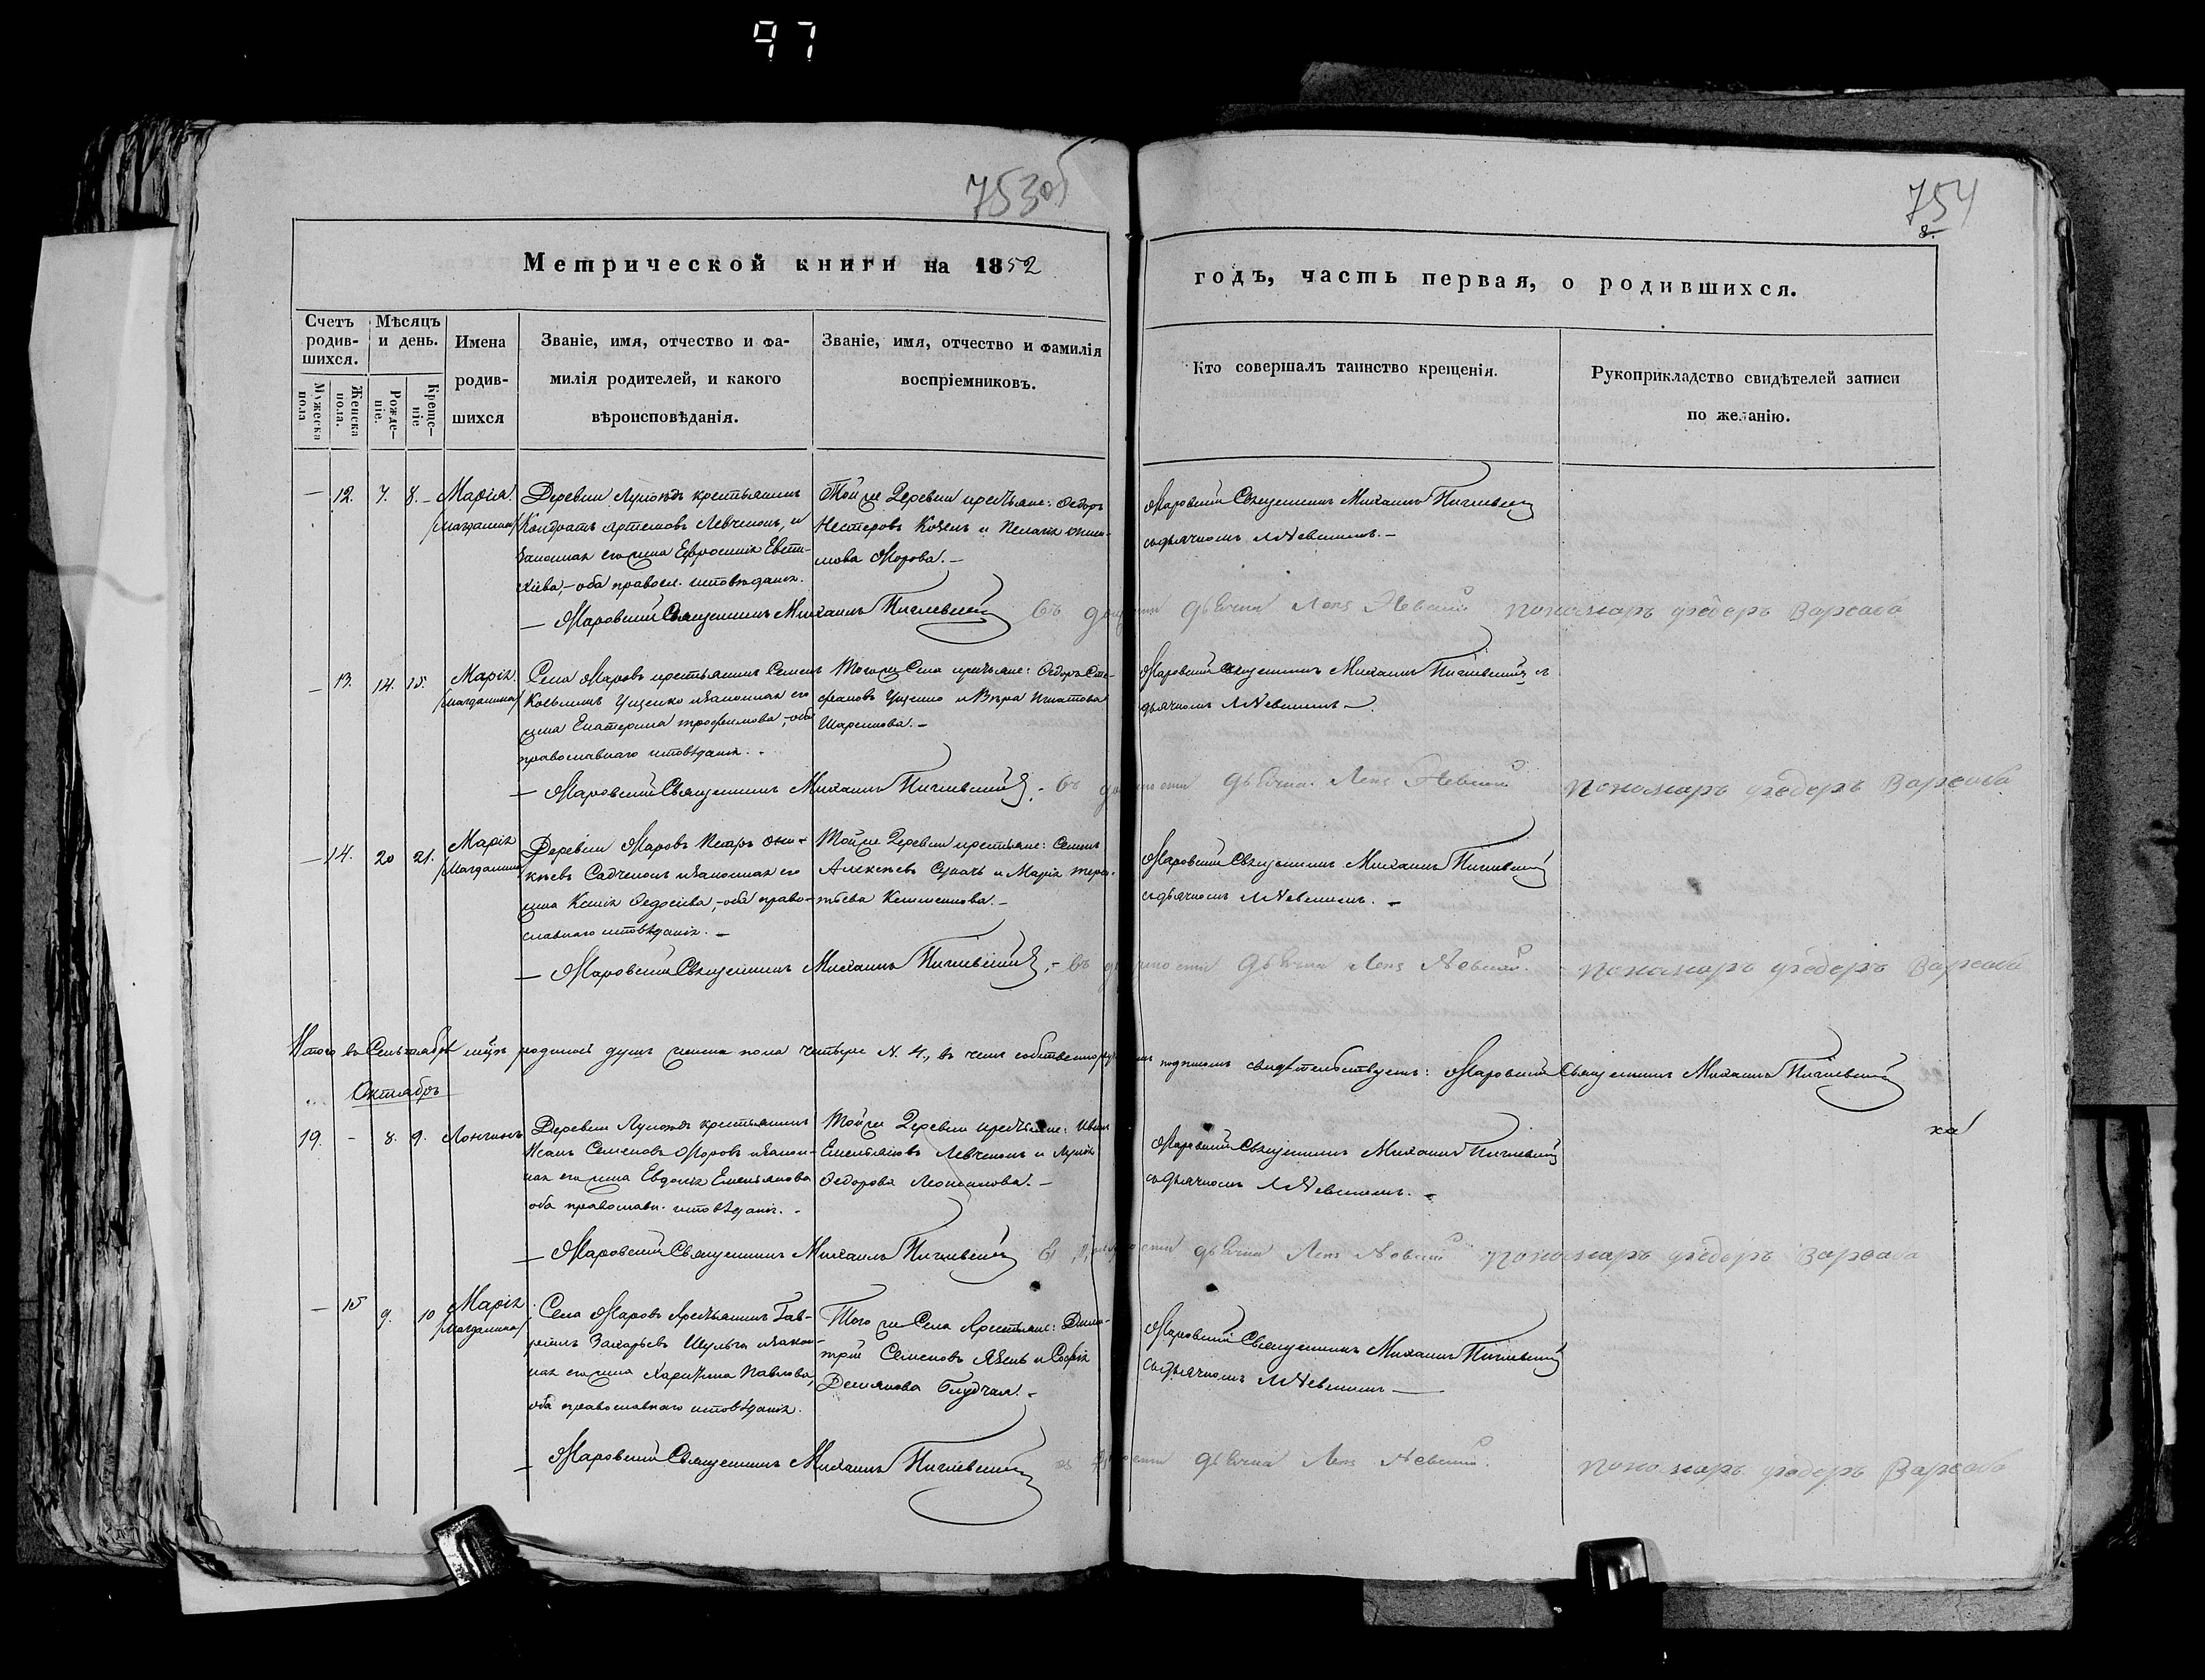 97
753об
754
8.
Метрической книги на 1852
годъ, часть первая, о родившихся.
Счетъ родив-
шихся.
Мѣсяцъ
и день.
Мужеска пола
Женска пола.
Рожде-
ніе.
Креще-
ніе
Имена
родив-
шихся
Званіе, имя, отчество и фа-
милія родителей, и какого
вѣроисповѣданія.
Званіе, имя, отчество и фамилія
воспріемниковъ.
Кто совершалъ таинство крещенія.
Рукоприкладство свидѣтелей записи
по желанію.
— 12. 7. 8. – Марія
/Магдалина/
крестьянинъ
Кондратъ Артемовъ Левченокъ, и
законная его жена Ефросинія Евти-
хіева, – оба правосл. исповѣданія.
Той же деревни крестьяне: Федоръ
Нестеровъ Козелъ и Пелагія
мова Морова. –
Маровскій Священникъ Михаилъ
съ дьячкомъ Л. Невскимъ. –
— Маровскій Священникъ Михаилъ
въ должности дьячка Левъ Невскій
пономарь Федоръ Варсава
— 13. 14. 15. Марія
/Магдалина/
Села Маровъ крестьянинъ Семенъ
Козьминъ Ущенко и законная его
жена Екатерина Трофимова, – оба
православнаго исповѣданія. –
Того же Села крестьяне: Федоръ Сте-
фановъ Ущенко и Вѣра Игнатова
Маровскій Священникъ Михаилъ
дьячкомъ Л. Невскимъ –
— Маровскій Священникъ Михаилъ
– въ должности дьячка Левъ Невскій
пономарь Федоръ Варсава
— 14. 20 21. Марія
/Магдалина/
Деревни Маровъ Петръ Они-
кіевъ Садченокъ и законная его
жена Ксенія Федосіева, – оба право-
славнаго исповѣданія. –
Той же деревни крестьяне: Семенъ
Алексѣевъ и Марія Терен-
тьева
Маровскій Священникъ Михаилъ
съ дьячкомъ Л. Невскимъ. –
— Маровскій Священникъ Михаилъ
– въ должности дьячка Левъ Невскій.
пономарь Федоръ Варсава
Итого въ Сентябрѣ мцѣ родилось душъ женска пола четыре N. 4., въ чемъ собственноручнымъ подписомъ свидѣтельствуемъ: Маровскій Священникъ Михаилъ
Октябрь
19. – 8. 9. Лонгинъ
крестьянинъ
Семеновъ Моровъ и закон-
ная его жена Евдокія Емельянова
оба православн. исповѣданія. –
Той же деревни крестьяне: Иванъ
Емельяновъ Левченокъ и
Федорова
ка
Маровскій Священникъ Михаилъ
съ дьячкомъ Л. Невскимъ. –
— Маровскій Священникъ Михаилъ
въ должности дьячка Левъ Невскій
пономарь Федоръ Варсава
— 15 9. 10 Марія
/Магдалина/
Села Маровъ Крестьянинъ Гав-
ріилъ Захарьевъ Шульга и закон-
ная его жена Харитина Павлова,
оба православнаго исповѣданія.
Того же Села Крестьяне: Дими-
трій Семеновъ и Софія
Демьянова
Маровскій Священникъ Михаилъ
съ дьячкомъ Л. Невскимъ —
— Маровскій Священникъ Михаилъ
въ должности дьячка Левъ Невскій.
пономарь Федоръ Варсава